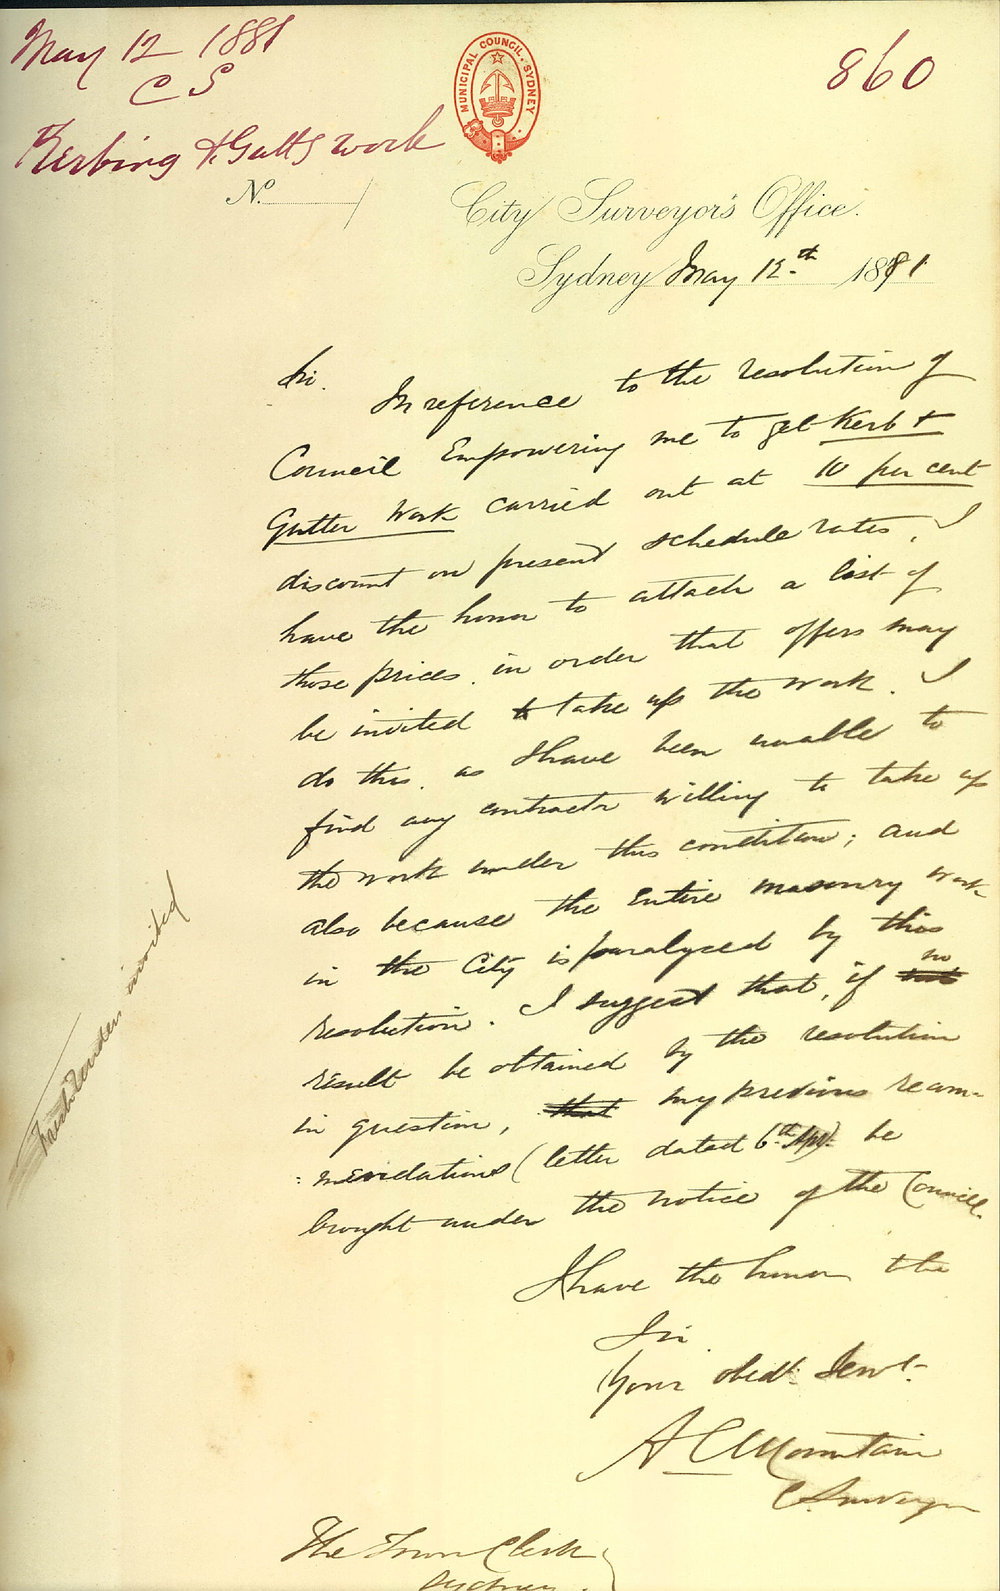 May 12 1881
C S
Kerbing & Guttg work
860
MUNICIPAL COUNCIL, SYDNEY
No.
City Surveyor's Office.
Sydney May 12.th 1881
Sir.
In reference to the resolution of
Council Empowering me to get Kerb &
Gutter Work carried out at 10 per cent
discount on present schedule rates, I
have the honor to attach a list of
those prices in order that offers may
be invited to take up the work. I
do this. as I have been unable to
find any contractr willing to take up
the work under this condition; and
also because the Entire masonry work
in the City is paralyzed by this
resolution. I suggest that, if no
result be obtained by the resolution
in question, that my previous recom-
:mendations (letter dated 6th Apl). be
brought under the notice of the Council.
I have the honor the
Sir
Your obedt. Servt.
A C Mountain
C Surveyor
The Town Clerk
Sydney.
Fresh Tenders invited